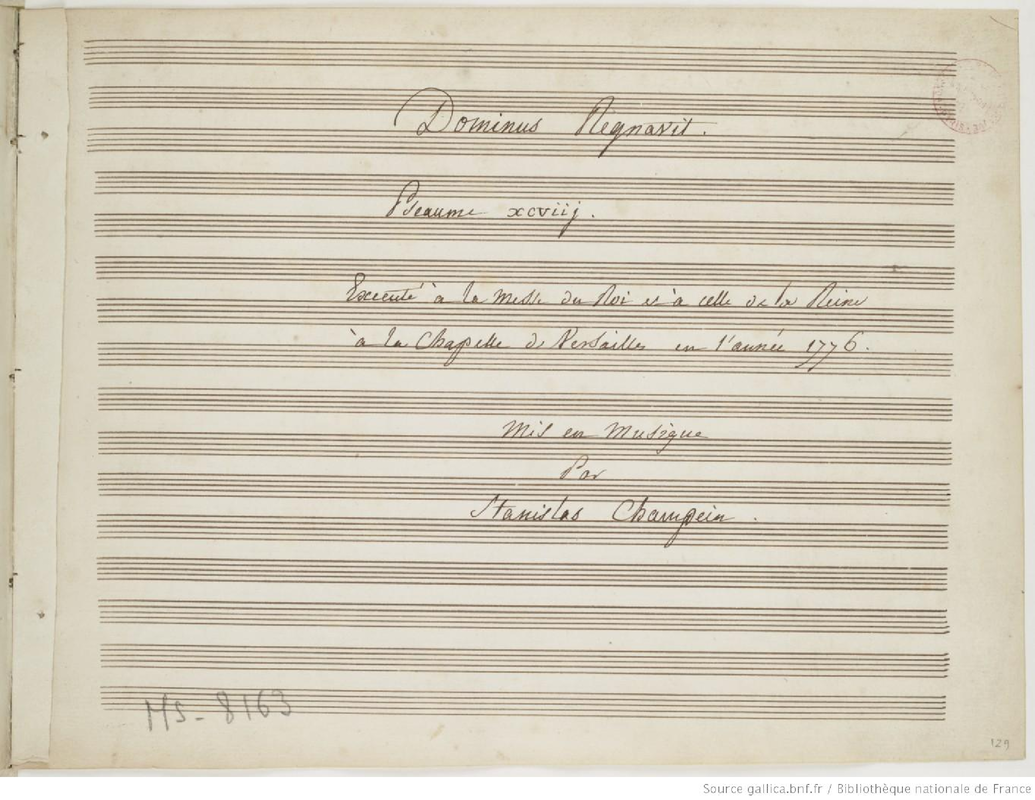 Dominus Regnavit.
Pseaume xcviij.
Executé à la Messe du Roi et à celle de la Reine
à la Chapelle de Versailles en l'année 1776.
Mis en Musique
Par
Stanislas Champein.
MS-8163
129
Source gallica.bnf.fr / Bibliothèque nationale de France